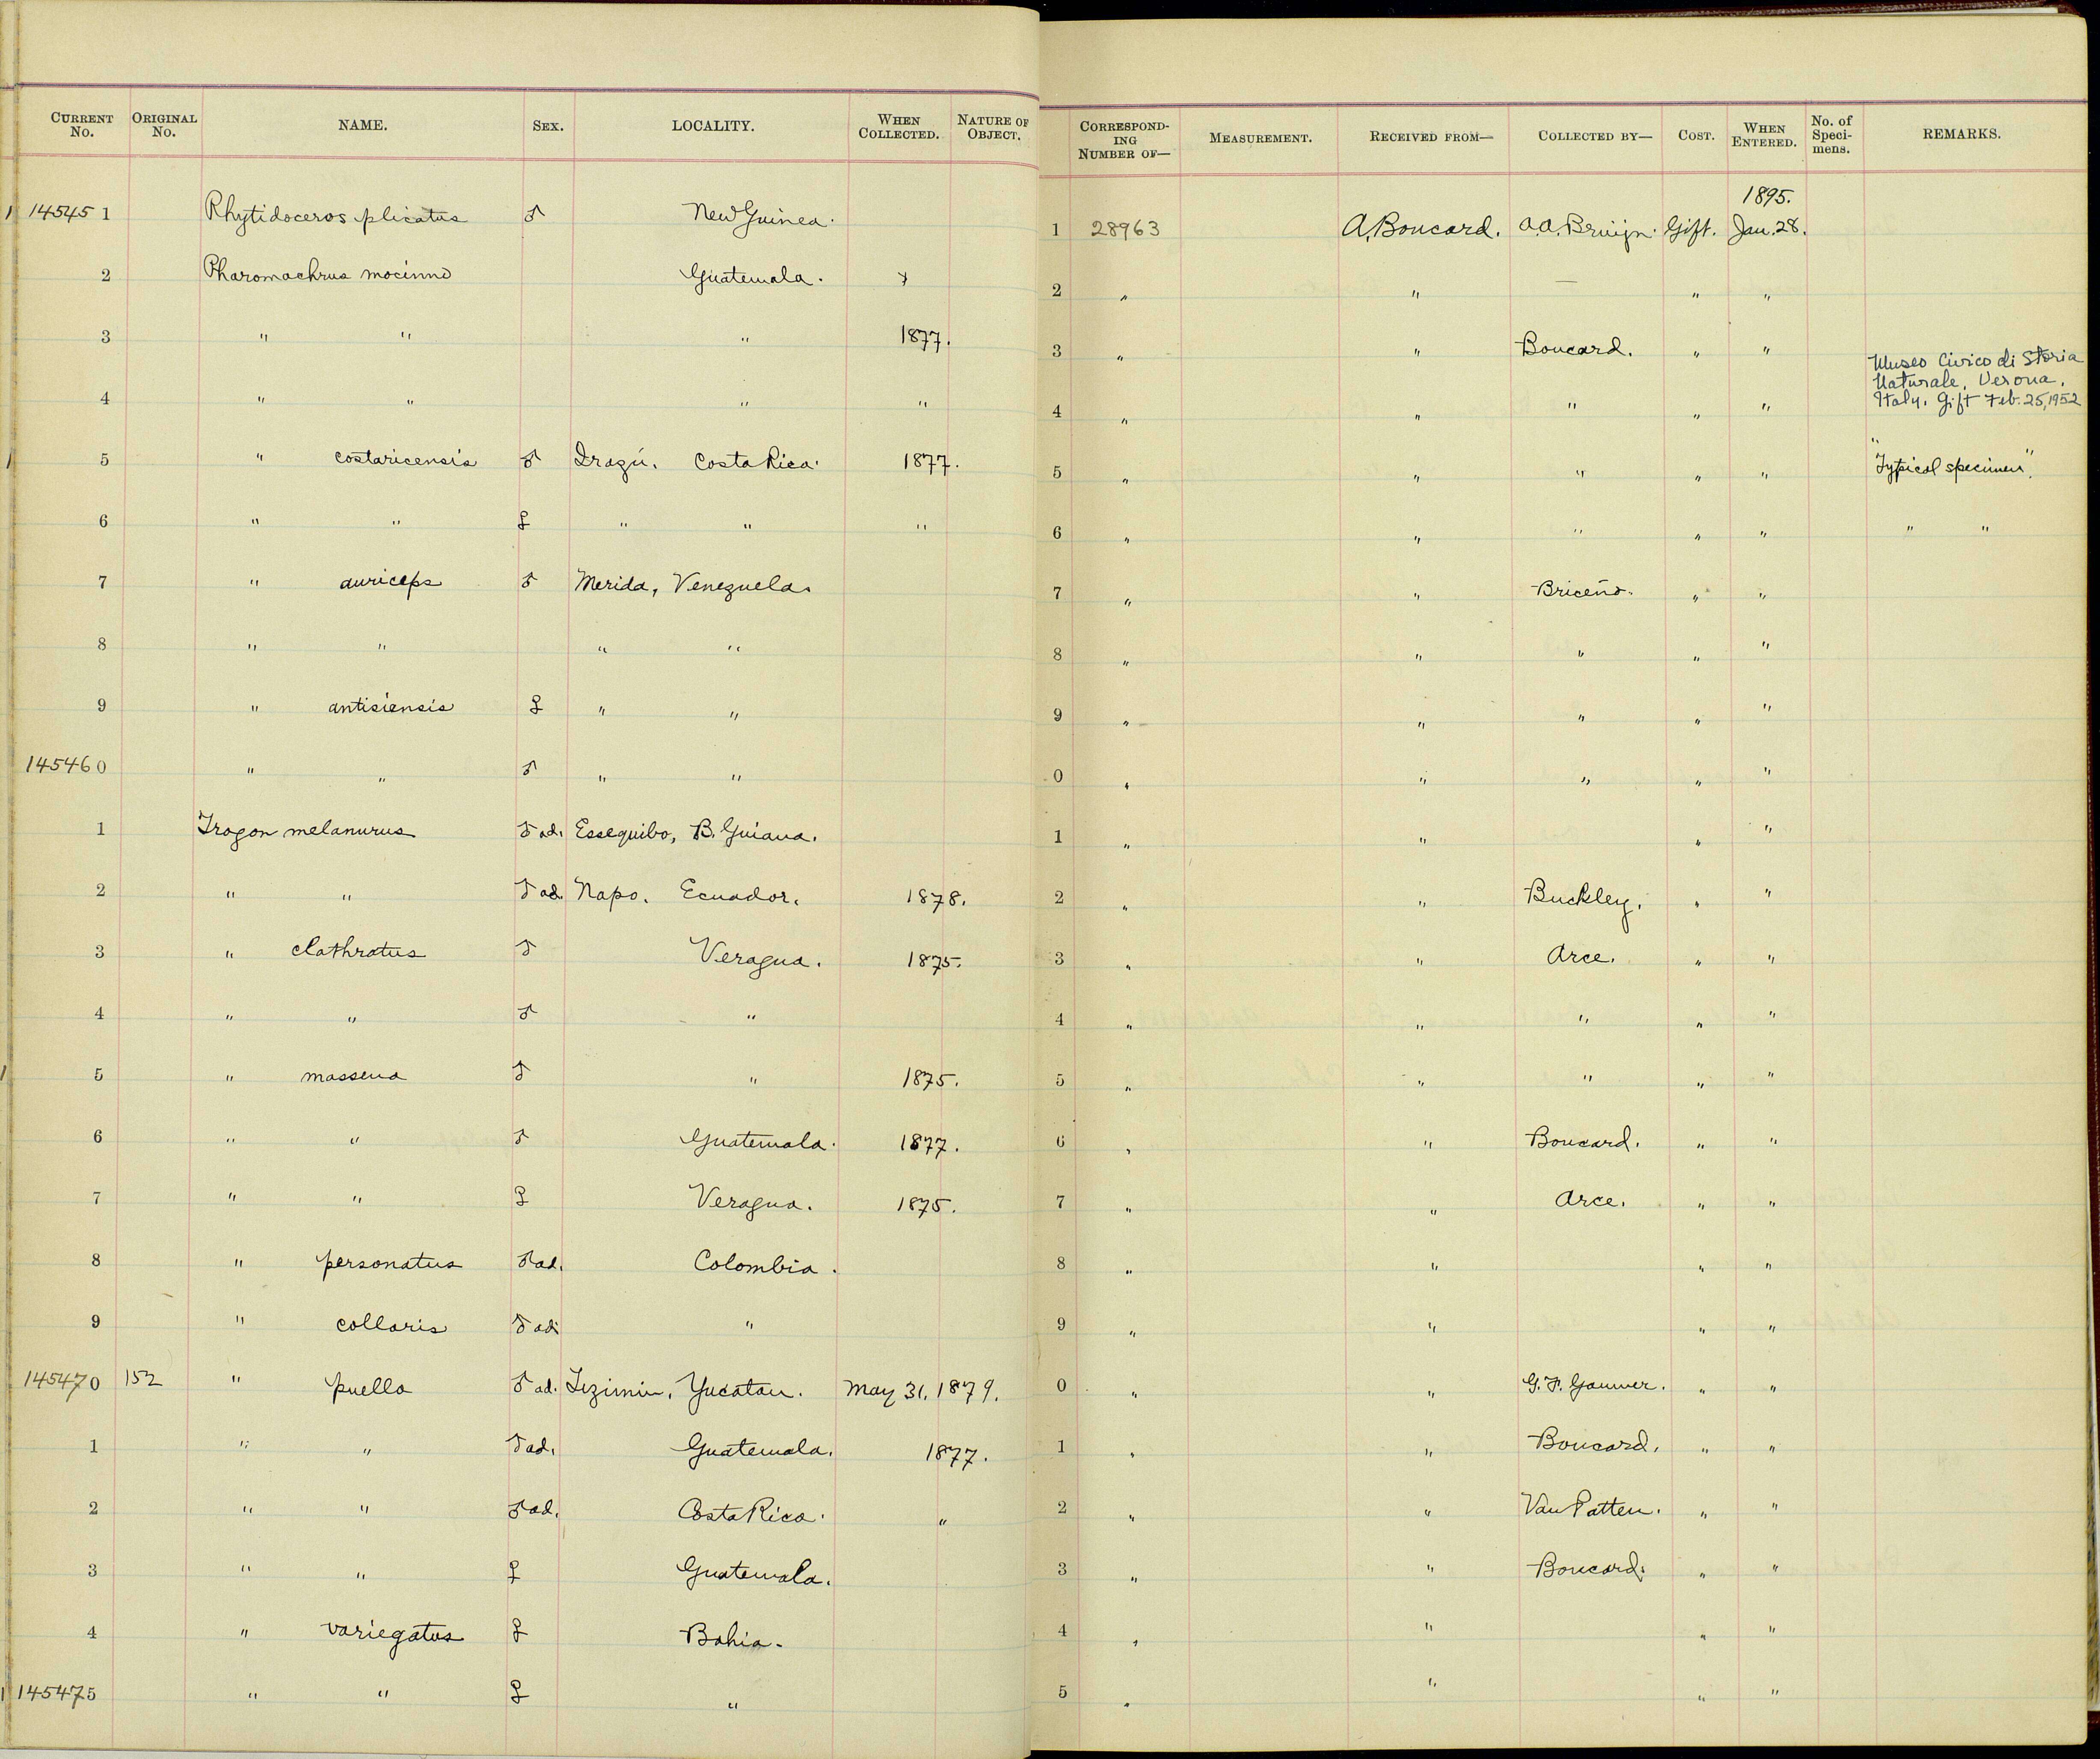 CURRENT No. ORIGINAL No. NAME. SEX. LOCALITY. WHEN COLLECTED. NATURE OF OBJECT. CORRESPONDING NUMBER OF— MEASUREMENT. RECEIVED FROM— COLLECTED BY— COST. WHEN ENTERED. No. of Specimens. REMARKS.
1895.
1 145451 Rhytidoceros plicatus ♂ New Guinea. 1 28963 A. Boucard. A.A. Bruijn. Gift. Jan. 28.
2 Pharomachrus mocinno Guatemala. 2 " " — " "
3 " " " 1877. 3 " " Boucard. " "
4 " " " " 4 " " " " " Museo Civico di Storia Naturale, Verona, Italy. Gift Feb. 25, 1952
1 5 " costaricensis ♂ Irazú. Costa Rica. 1877. 5 " " " " " "Typical specimen".
6 " " ♀ " " " 6 " " " " " " "
7 " auriceps ♂ Merida, Venezuela. 7 " " Briceño. " "
8 " " " " 8 " " " " "
9 " antisiensis ♀ " " 9 " " " " "
145460 " " ♂ " " 0 " " " " "
1 Trogon melanurus ♂ ad. Essequibo, B. Guiana. 1 " " " "
2 " " ♂ ad. Napo. Ecuador. 1878. 2 " " Buckley. " "
3 " clathratus ♂ Veragua. 1875. 3 " " Arce. " "
4 " " ♂ " 4 " " " " "
1 5 " massena ♂ " 1875. 5 " " " " "
6 " " ♂ Guatemala. 1877. 6 " " Boucard. " "
7 " " ♀ Veragua. 1875. 7 " " Arce. " "
8 " personatus ♂ ad. Colombia. 8 " " " "
9 " collaris ♂ ad. " 9 " " " "
145470 152 " puella ♂ ad. Tizimin, Yucatan. May 31, 1879. 0 " " G. F. Gaumer. " "
1 " " ♂ ad. Guatemala. 1877. 1 " " Boucard. " "
2 " " ♂ ad. Costa Rica. " 2 " " Van Patten. " "
3 " " ♀ Guatemala. 3 " " Boucard. " "
4 " variegatus ♀ Bahia. 4 " " " "
1 145475 " " ♀ " 5 " " " "